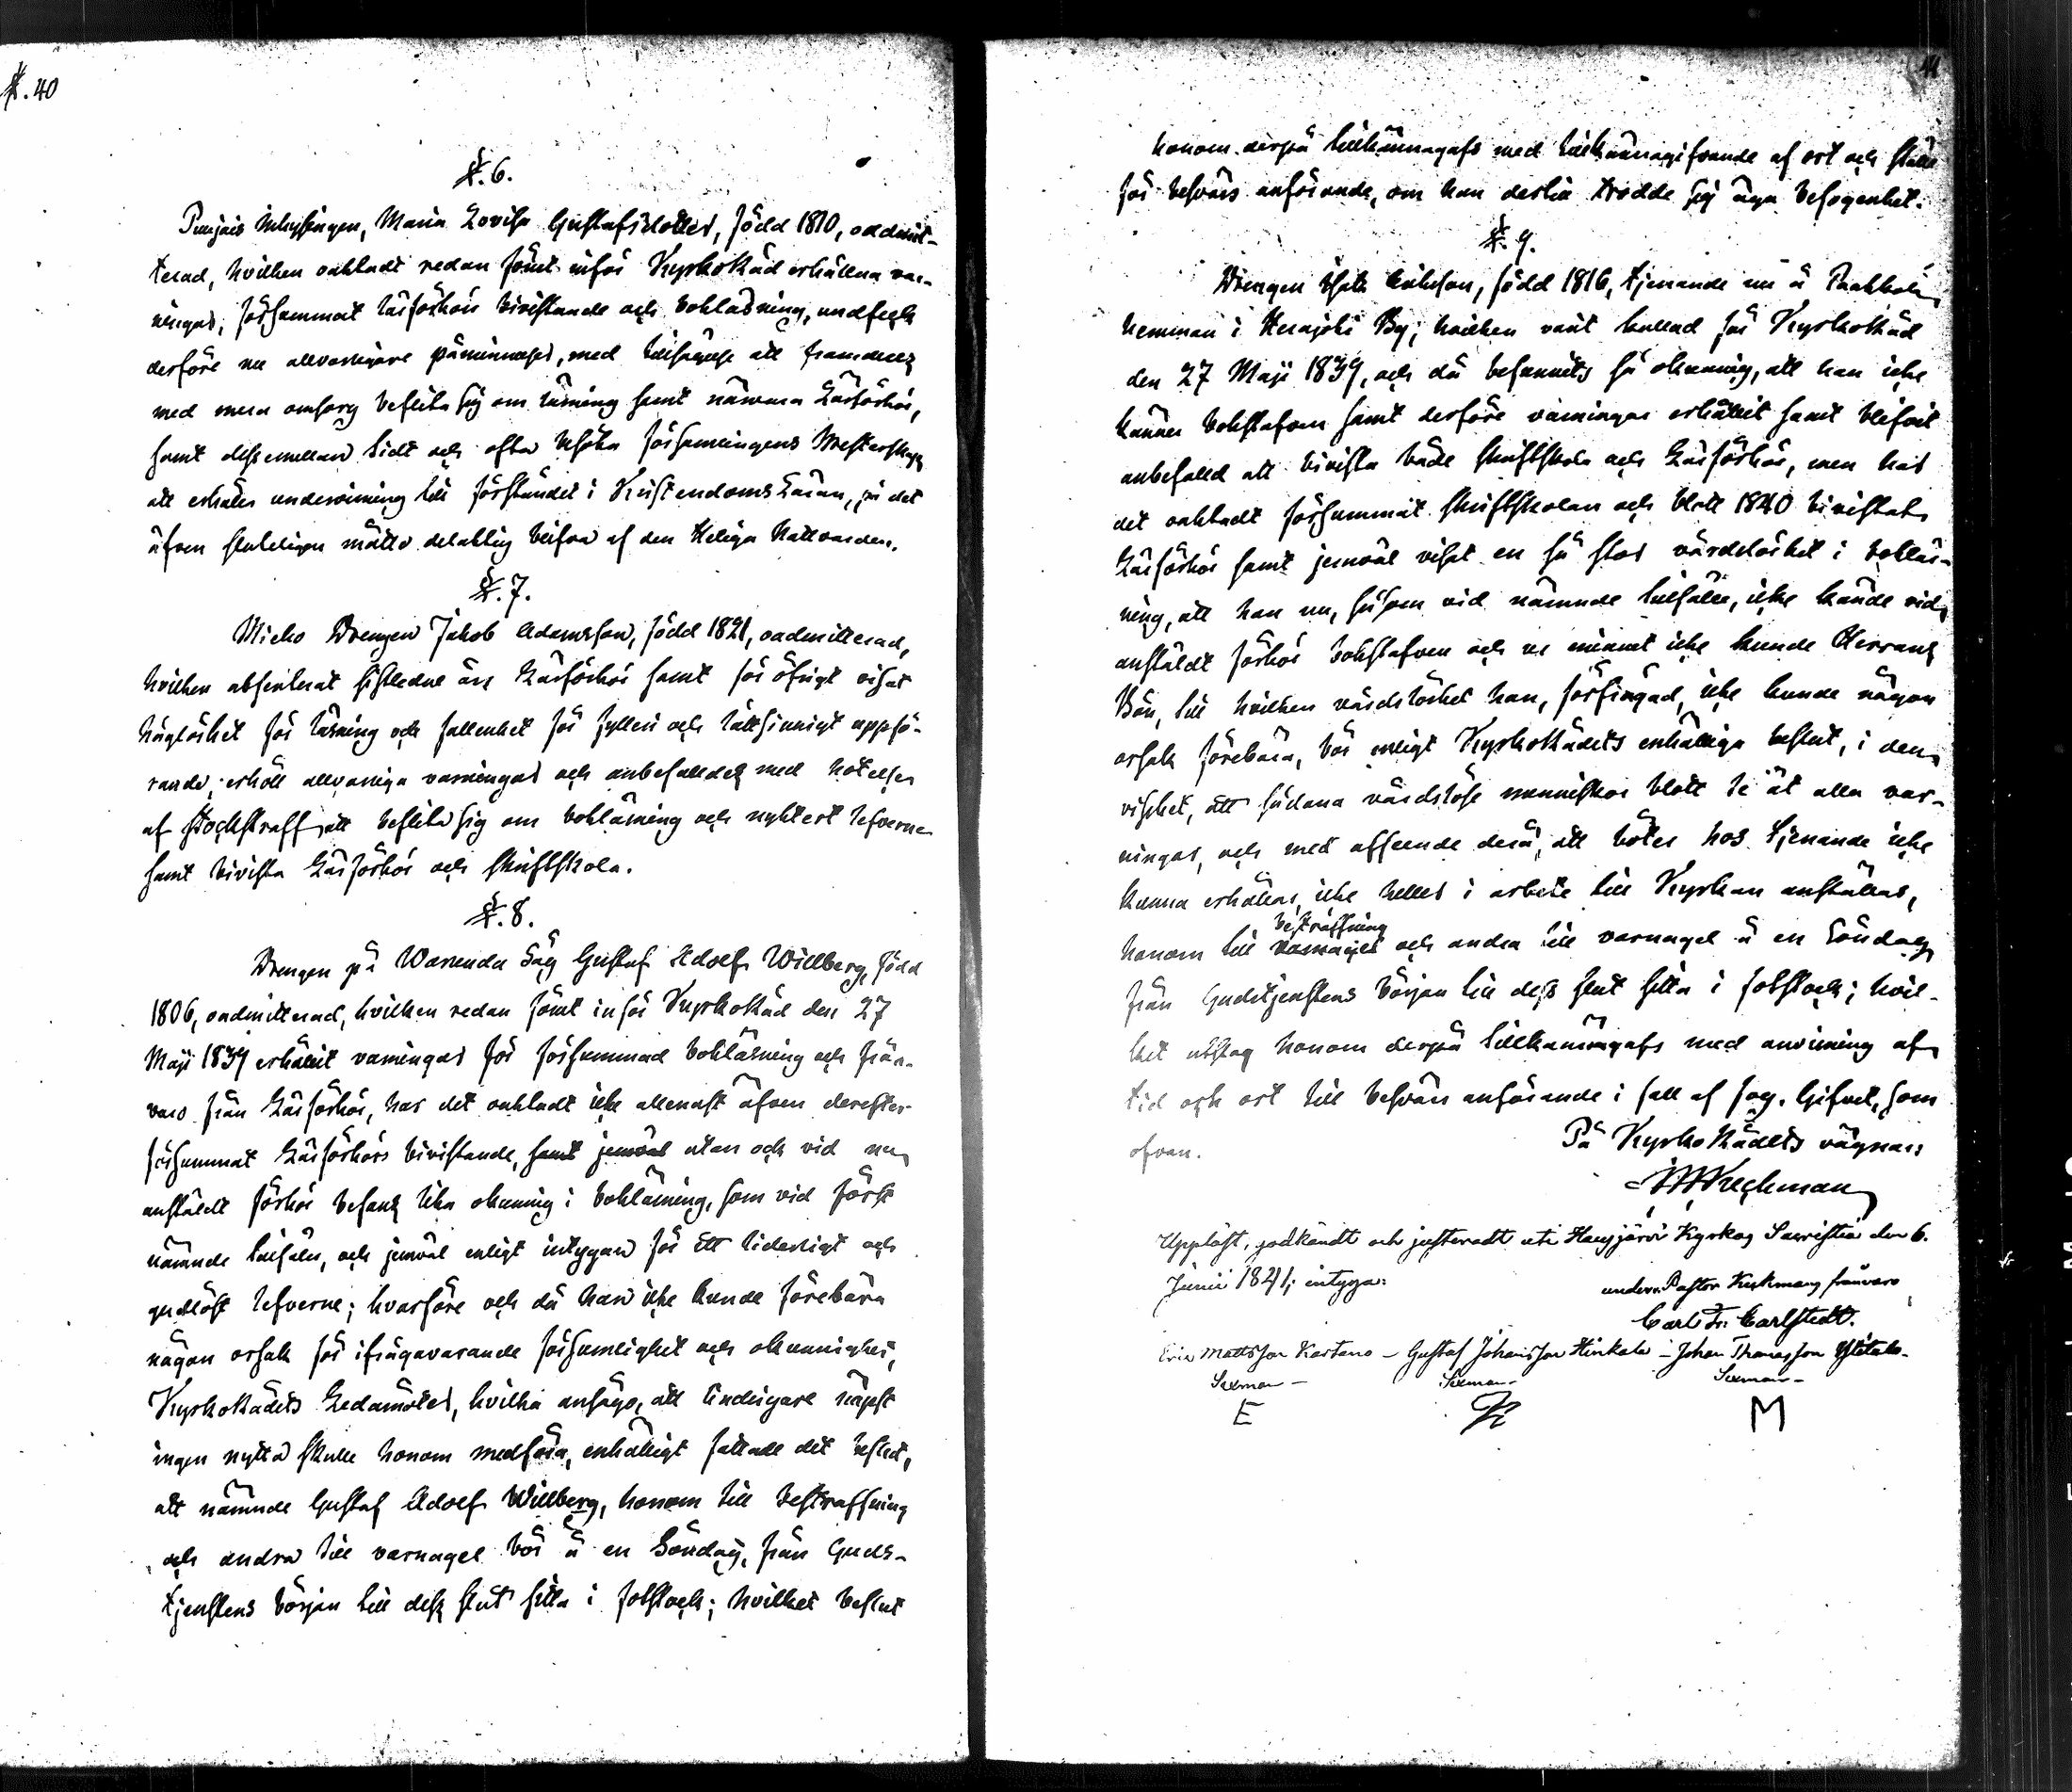 §. 40
§. 6.
Inhysingen, Maria Lovisa Gustafsdotter, född 1810, oadmit-
terad, hvilken oaktadt redan förut inför KyrkoRåd erhållna var-
ningar, försummat Läsförhörs bivistande och bokläsning, undfick
derföre nu allvarligare påminnelser, med tillsägelse att framdeles
med mera omsorg beflita sig om läsning samt närvara Läsförhör,
samt dessemellan tidt och ofta besöka församlingens
att erhålla undervisning till förståndet i Kristendoms Läran, på det
äfven slutligen måtte delaktig blifva af den Heliga Nattvarden.
§. 7.
Drengen Jakob Adamsson, född 1821, oadmitterad,
hvilken absenterat sistledne års Läsförhör samt för öfrigt visat
håglöshet för läsning och fallenhet för fylleri och lättsinnigt uppfö-
rande; erhöll allvarliga varningar och anbefalldes med hotelser
af stockstraff att beflita sig om bokläsning och nyktert lefverne
samt bivista Läsförhör och skriftskola.
§. 8.
Drengen på Wanenda Såg Gustaf Adolf Willberg, född
1806, oadmitterad, hvilken redan förut inför KyrkoRåd den 27
Maji 1839 erhållit varningar för försummad bokläsning och från-
varo från Läsförhör, har det oaktadt icke allenast äfven derefter
försummat Läsförhörs bivistande, samt jemväl utan och vid nu
anställdt förhör befans lika okunnig i bokläsning, som vid först
nämnde tillfälle, och jemväl enligt intygan för Ett liderligt och
gudlöst lefverne; hvarföre och då han icke kunde förebära
någon orsak för ifrågavarande försumlighet och okunnighet,
KyrkoRådets Ledamöter, hvilka ansågo, att lindrigare näpst
ingen nytta skulle honom medföra, enhälligt fattade det beslut,
att nämnde Gustaf Adolf Willberg, honom till bestraffning
och andra till varnagel bör å en Söndag, från Guds-
tjenstens början till dess slut sitta i fotstock; hvilket beslut
honom derpå tillkännagafs med tillkännagifvande af ort och ställe
för besvärs anförande, om han dertill trodde sig äga befogenhet.
§. 9.
Drengen född 1816, tjenande nu å
hemman i Herajoki By; hvilken varit kallad för KyrkoRåd
den 27 Maji 1839, och då befunnits så okunnig, att han icke
känner bokstafven samt derföre varningar erhållit samt blifvit
anbefalld att bivista både skriftskola och Läsförhör, men har
det oaktadt försummat skriftskolan och blott 1840 bivistat
Läsförhör samt jemväl visat en så stor vårdslöshet i bokläs-
ning, att han nu, såsom vid nämnde tillfälle, icke kände vid
anställdt förhör bokstafven och ur minnet icke kunde Herrans
Bön, till hvilken vårdslöshet han, förfrågad, icke kunde någon
orsak förebära, bör enligt KyrkoRådets enhälliga beslut, i den
visshet, att sådana vårdslösa menniskor blott le åt alla var-
ningar, och med afseende derå, att böter hos tjenande icke
kunna erhållas, icke heller i arbete till Kyrkan anställas,
bestraffning
honom till varnagel och andra till varnagel å en Söndag
från Gudstjenstens början till dess slut sitta i fotstock; hvil-
ket utslag honom derpå tillkännagafs med anvisning af
tid och ort till besvärs anförande i fall af sog. Gifvet, som
ofvan.
På KyrkoRådets vägnar:
Kreckman
Uppläst, godkändt och justeradt uti Hausjärvi Kyrkas Sacristia den 6.
Junii 1841; intyga:
under Pastor Krekmans frånvaro
Carl Fr. Carlstedt.
Eric Mattsson Kartano - Gustaf Johansson Hinkala - Johan Thomasson Ylitalo.
Sexman - Sexman - Sexman -
E M